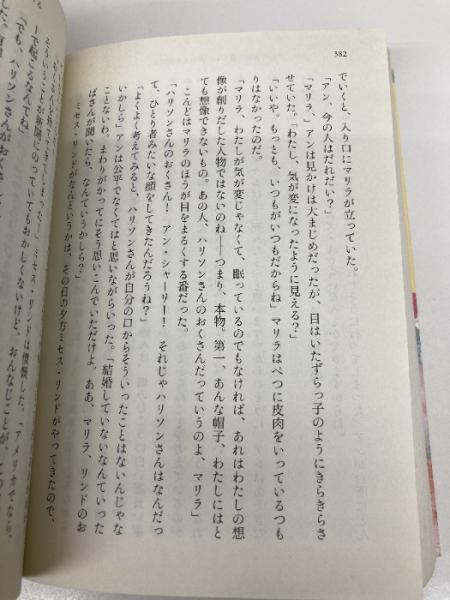 382
でいくと、入り口にマリラが立っていた。
「アン、今の人はだれだい？」
「マリラ、」アンは見かけは大まじめだったが、目はいたずらっ子のようにきらきらさ
せていた。「わたし、気が変になったように見える？」
「いいや。もっとも、いつもがいつもだからね」マリラはべつに皮肉をいっているつも
りはなかったのだ。
「マリラ、わたしが気が変じゃなくて、眠っているのでもなければ、あれはわたしの想
像が創りだした人物ではないのね――つまり、本物。第一、あんな帽子、わたしにはと
ても想像できないもの。あの人、ハリソンさんのおくさんだっていうのよ、マリラ」
こんどはマリラのほうが目をまるくする番だった。
「ハリソンさんのおくさん！　アン・シャーリー！　それじゃハリソンさんはなんだっ
て、ひとり者みたいな顔をしてきたんだろうね？」
「よくよく考えてみると、ハリソンさんが自分の口からそういったことはないんじゃな
いかしら」アンは公平でなくてはと思いながらいった。「結婚していないなんていった
ことないわ。まわりがかってにそう思いこんでいただけよ。ああ、マリラ、リンドのお
ばさんが聞いたら、なんていうかしら？」
ミセス・リンドがなんというかは、その日の夕方ミセス・リンドがやってきたので、
ミセス・リンドは憤慨した。「アメリカでなら、
が新聞にのっていてもおかしくないけど、おんなじことが、
で起こるなんてね」
「でも、ハリソンさんがおくさん